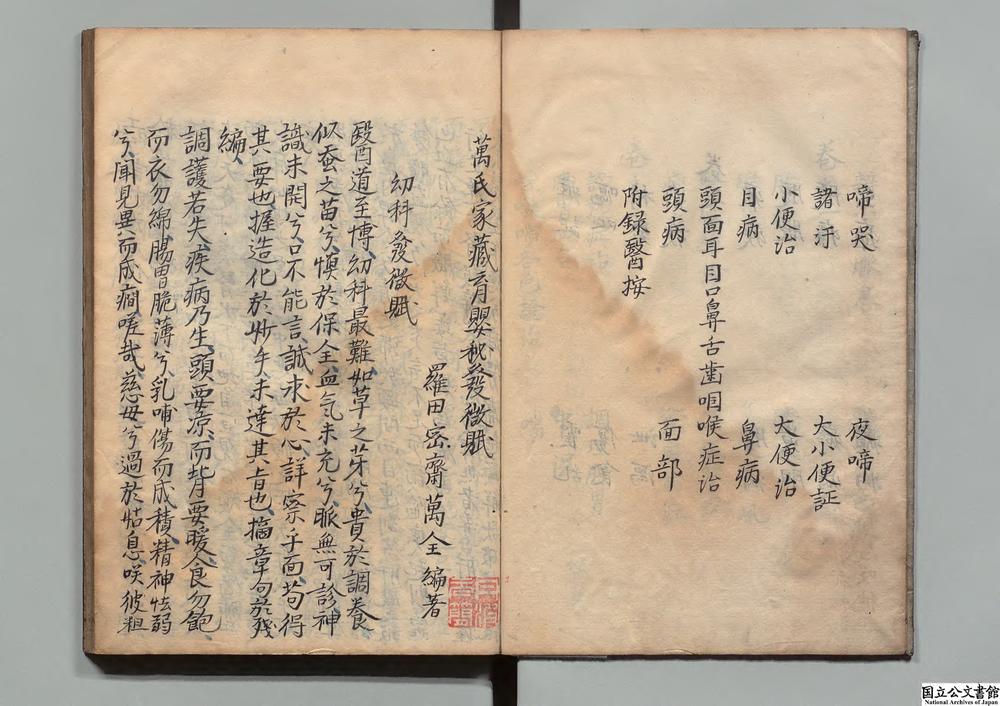 啼哭 夜啼
諸汗 大小便証
小便治 大便治
目病 鼻病
頭面耳目口鼻舌齒咽喉症治
頭病 面部
附録醫按
萬氏家藏育嬰秘發微賦
羅田密齋萬全編著
幼科發微賦
醫道至博、幼科最難、如草之芽兮、貴於調養
似蚕之苗兮、慎於保全、血気未充兮、脈無可診、神
識未開兮、口不能言、誠求於心、詳察乎面、苟得
其要也、握造化於妙手、未達其旨也、摘章句於殘
編、
調護若失、疾病乃生、頭要凉、而背要暖、食勿飽、
而衣勿綿、腸胃脆薄兮、乳哺傷而成積、精神怯弱
兮、聞見異而成癇、嗟哉、慈母兮過於姑息、咲彼粗
国立公文書館
National Archives of Japan